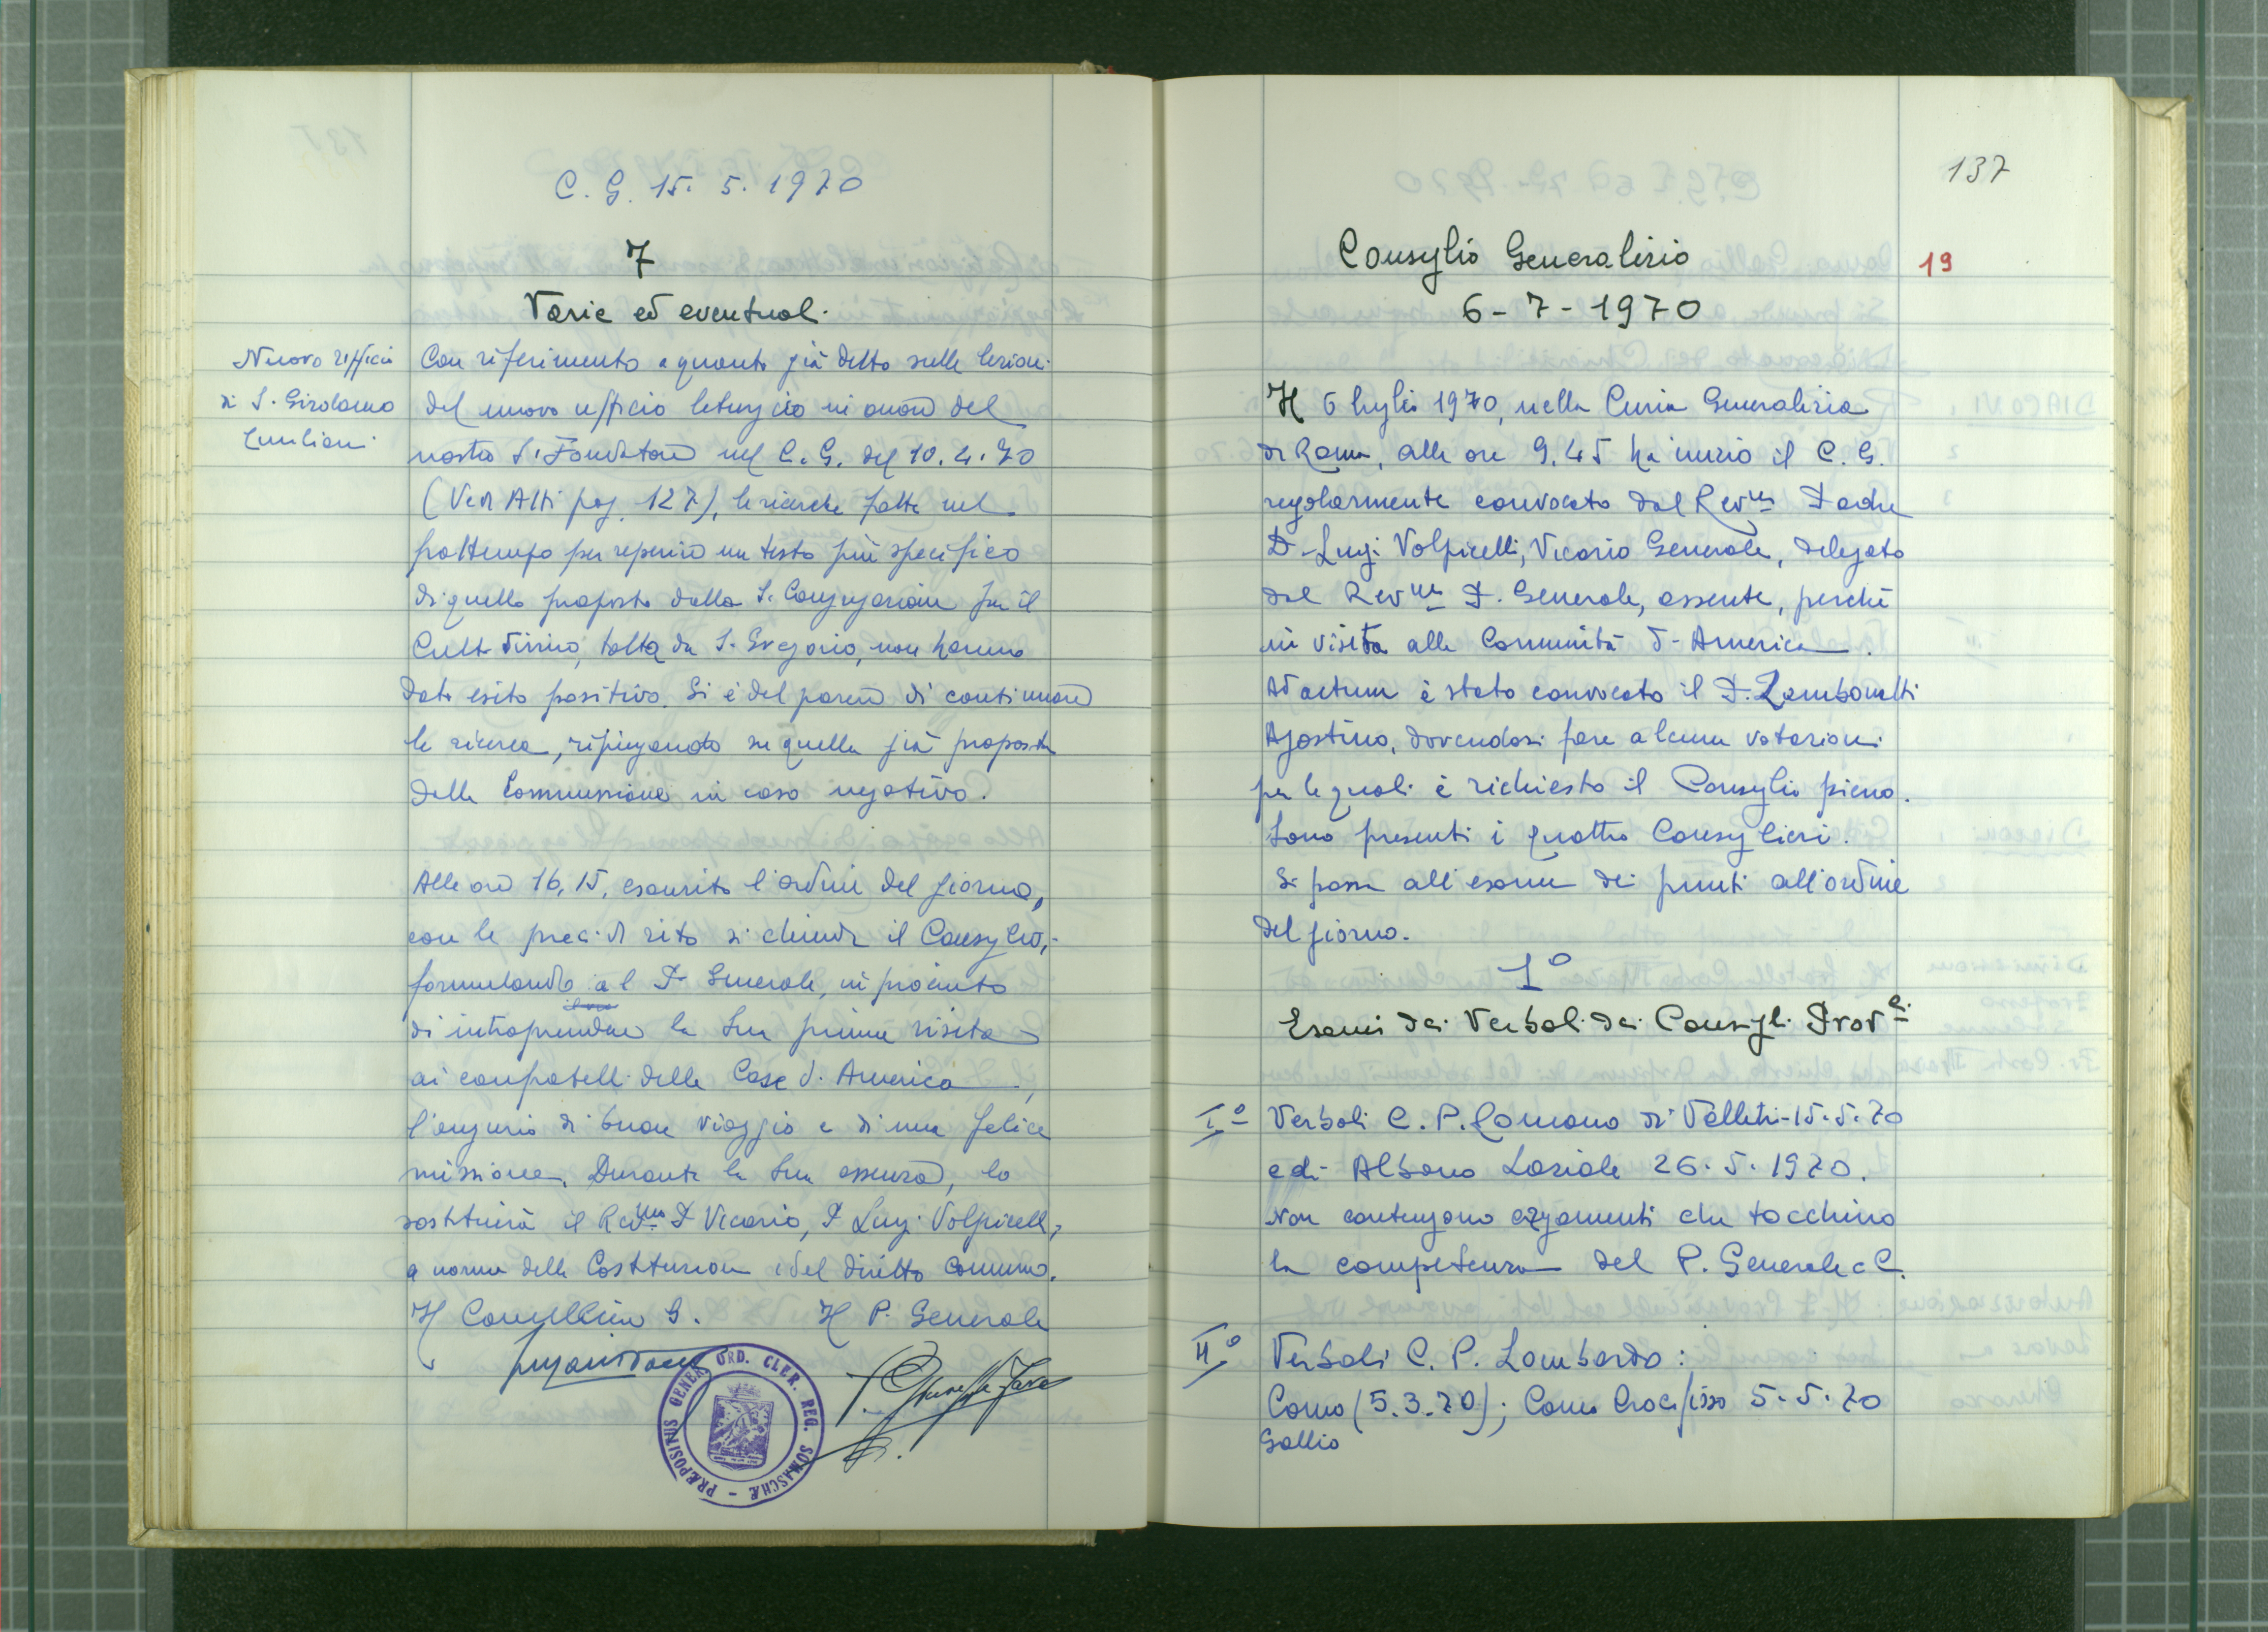 C. G. 15. 5. 1970
7
Varie ed eventuali
Nuovo ufficio
di S. Girolamo
Emiliani
Con riferimento a quanto già detto sulle lezioni
del nuovo ufficio liturgico in onore del
nostro S. Fondatore nel C. G. del 10.4.70
(Vedi Atti pag. 127), le ricerche fatte nel
frattempo per reperire un testo più specifico
di quello proposto dalla S. Congregazione per il
Culto Divino, tolto da S. Gregorio, non hanno
dato esito positivo. Si è del parere di continuare
la ricerca, ripiegando su quella già proposta
dalla Commissione in caso negativo.
Alle ore 16,15, esaurito l'ordine del giorno,
con le preci di rito si chiude il Consiglio,
formulando al P. Generale, in procinto
di intraprendere la Sua prima visita
ai confratelli delle Case d'America,
l'augurio di buon viaggio e di una felice
missione. Durante la Sua assenza, lo
sostituirà il Rev.mo P. Vicario, P. Luigi Volpicelli,
a norma delle Costituzioni e del diritto comune.
Il Cancelliere G. Il P. Generale
PRÆPOSITUS GENER. ORD. CLER. REG. SOMASCHÆ
137
19
Consiglio Generalizio
6-7-1970
Il 6 luglio 1970, nella Curia Generalizia
di Roma, alle ore 9.45 ha inizio il C. G.
regolarmente convocato dal Rev.mo Padre
D. Luigi Volpicelli, Vicario Generale, delegato
dal Rev.mo P. Generale, assente, perchè
in visita alle Comunità d'America.
Ad actum è stato convocato il P. Zambonatti
Agostino, dovendosi fare alcune votazioni
per le quali è richiesto il Consiglio pieno.
Sono presenti i quattro Consiglieri.
Si passa all'esame dei punti all'ordine
del giorno.
1°
Esami dei Verbali dei Consigli Prov.li
I° Verbali C. P. Romano di Velletri-15.5.70
e di Albano Laziale 26.5.1970.
Non contengono argomenti che tocchino
la competenza del P. Generale e C.
II° Verbali C. P. Lombardo:
Como (5.3.70); Como Crocifisso 5.5.70
Gallio